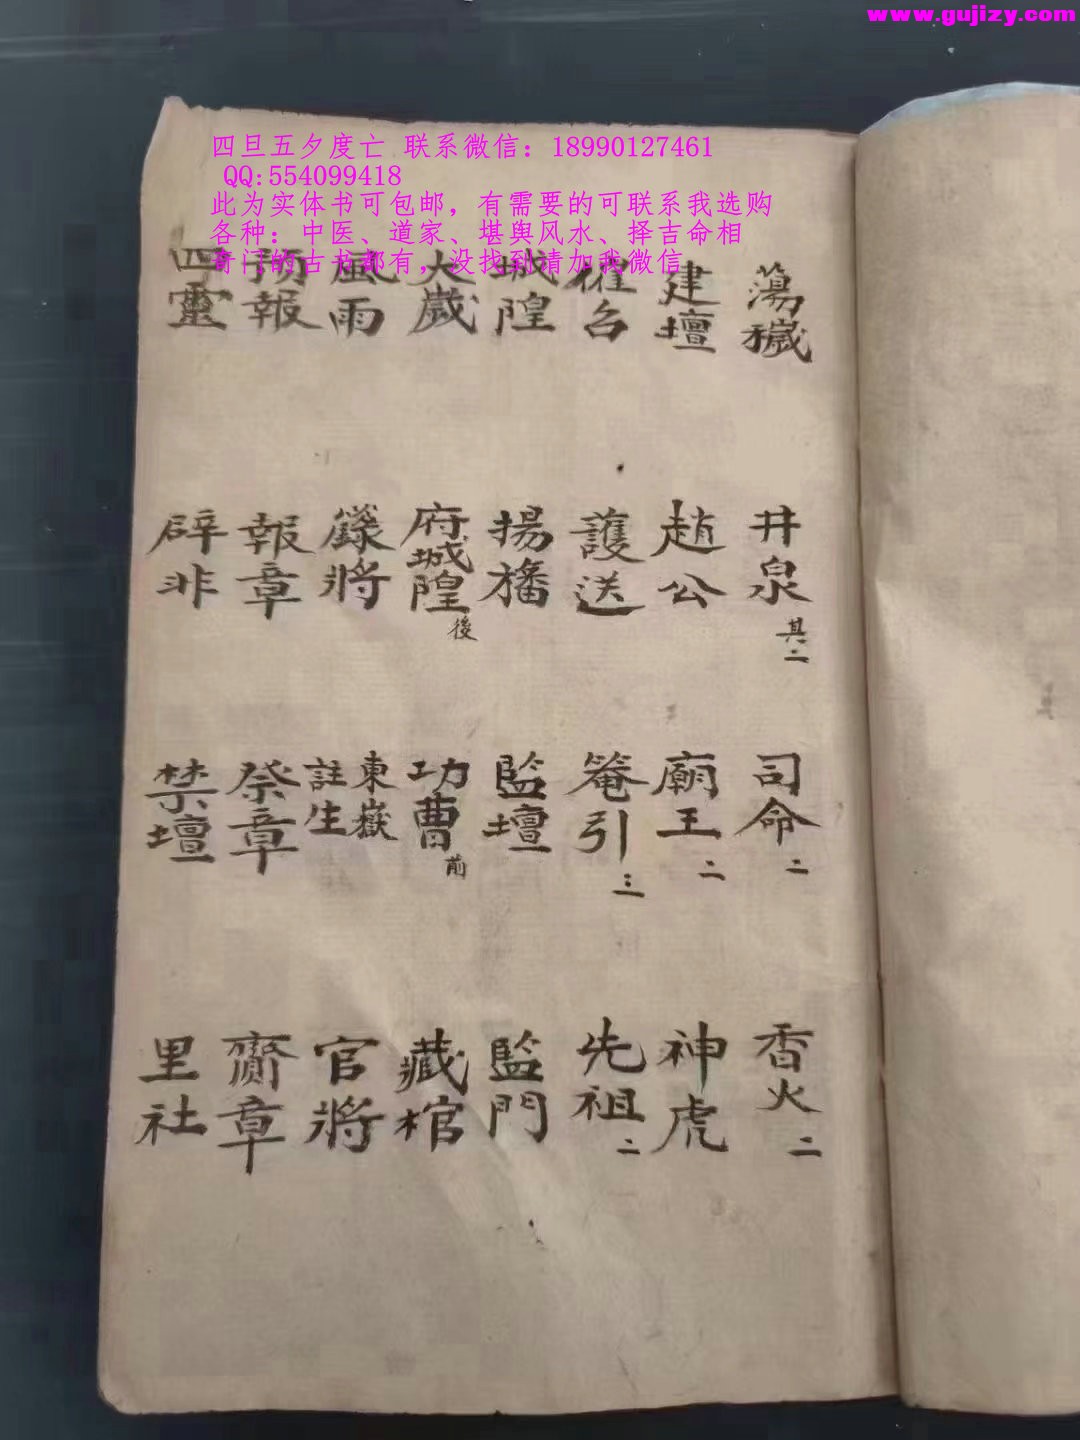 www.gujizy.com
四旦五夕度亡 联系微信：18990127461
QQ:554099418
此为实体书可包邮，有需要的可联系我选购
各种：中医、道家、堪舆风水、择吉命相
奇门的古书都有，没找到请加我微信
蕩穢 井泉其二 司命二 香火二
建壇 趙公 廟王二 神虎
催召 護送 菴引三 先祖二
城隍 揚旛 監壇 監門
大歲 府城隍後 功曹前 藏棺
風雨 籙將 東嶽註生 官將
預報 報章 祭章 齎章
四靈 辟非 禁壇 里社